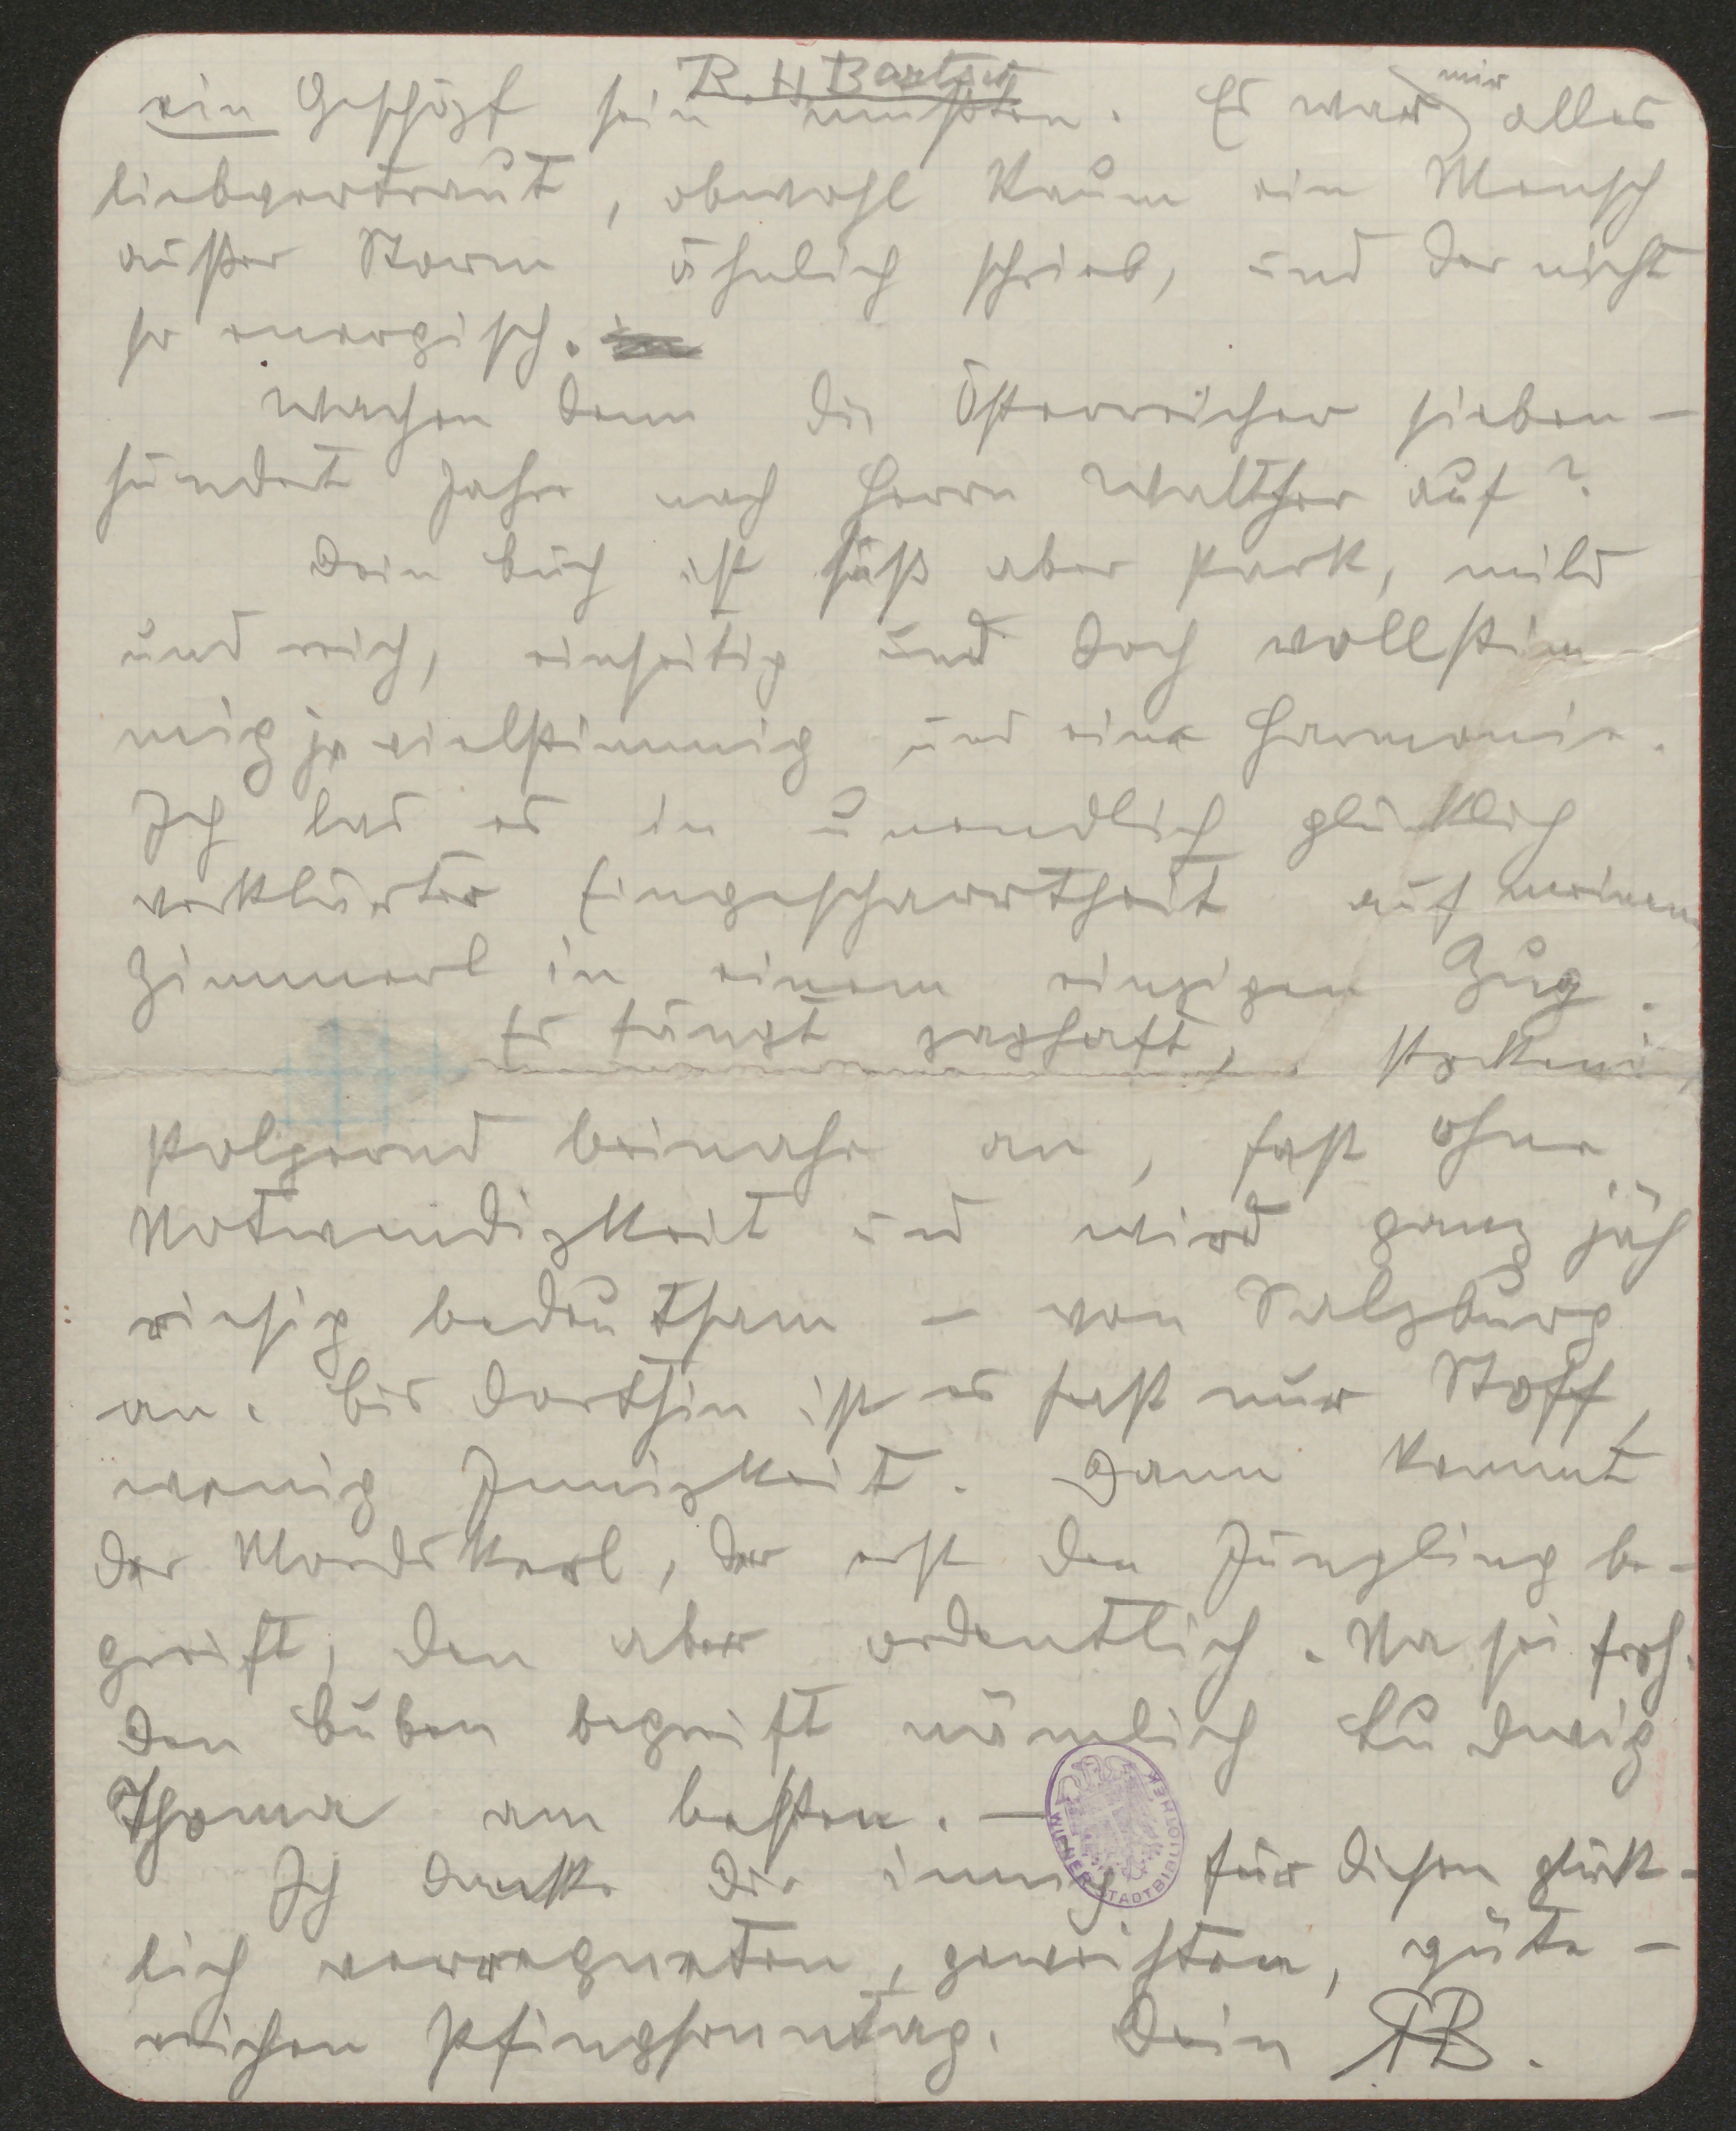 R. H. Bartsch
ein Geschöpf sein mußten. Es war mir alles
liebvertraut, obwohl kaum ein Mensch
außer Storm ähnlich schrieb, und der nicht
so energisch.
Wachen denn die Österreicher sieben-
hundert Jahre nach Herrn Walther auf?
Dein Buch ist süß aber stark, mild
und reich, einseitig und doch vollstim-
mig ja vielstimmig und eine Harmonie.
Ich las es in unendlich glücklich
verklärter Eingescharrtheit auf meinem
Zimmerl in einem einzigen Zug.
Es fängt zaghaft, stockend,
stolpernd beinahe an, fast ohne
Notwendigkeit und wird ganz jäh
riesig bedeutsam – von Salzburg
an. Bis dorthin ist es fast nur Stoff,
wenig Innigkeit. Dann kommt
der Mordskerl, der erst den Jüngling be-
greift, den aber ordentlich. Na sei froh.
Den Buben begreift nämlich Ludwig
Thoma am besten. –
Ich danke Dir innig für diesen glück-
lich verregneten, geweihten, güte-
reichen Pfingstsonntag. Dein RB.
WIENER STADTBIBLIOTHEK